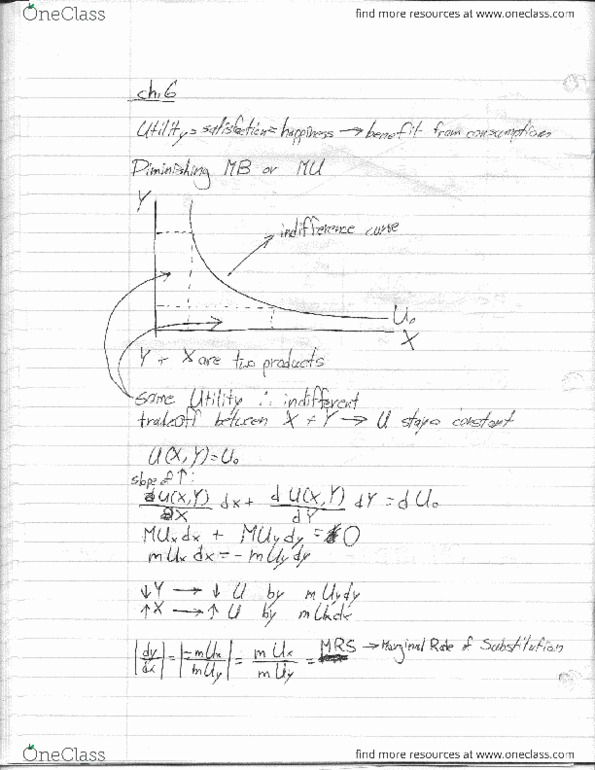 OneClass
find more resources at www.oneclass.com
ch.6
Utility = satisfaction = happiness → benefit from consumption
Diminishing MB or MU
Y
indifference curve
U₀
X
Y + X are two products
same Utility ∴ indifferent
tradeoff between X + Y → U stays constant
U(X,Y)=U₀
slope of ↑:
dU(X,Y)/dX dx + dU(X,Y)/dY dY = dU₀
MUx dx + MUy dy = 0
mUx dx = -mUy dy
↓Y → ↓ U by mUydy
↑X → ↑ U by mUxdx
|dy/dx| = |-mUx/mUy| = mUx/mUy = MRS → Marginal Rate of Substitution
OneClass
find more resources at www.oneclass.com